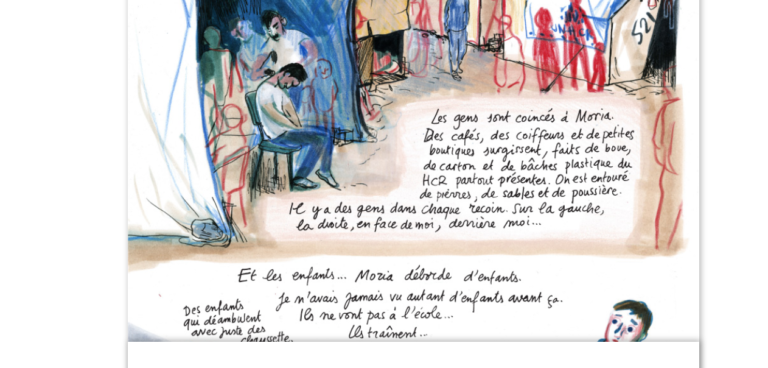 UNHCR
521
Les gens sont coincés à Moria.
Des cafés, des coiffeurs et de petites
boutiques surgissent, faits de boue,
de carton et de bâches plastique du
HCR partout présentes. On est entouré
de pierres, de sables et de poussière.
Il y a des gens dans chaque recoin. Sur la gauche,
la droite, en face de moi, derrière moi...
Et les enfants... Moria déborde d'enfants.
Je n'avais jamais vu autant d'enfants avant ça.
Ils ne vont pas à l'école...
Ils traînent..
Des enfants
qui déambulent
avec juste des
chaussette